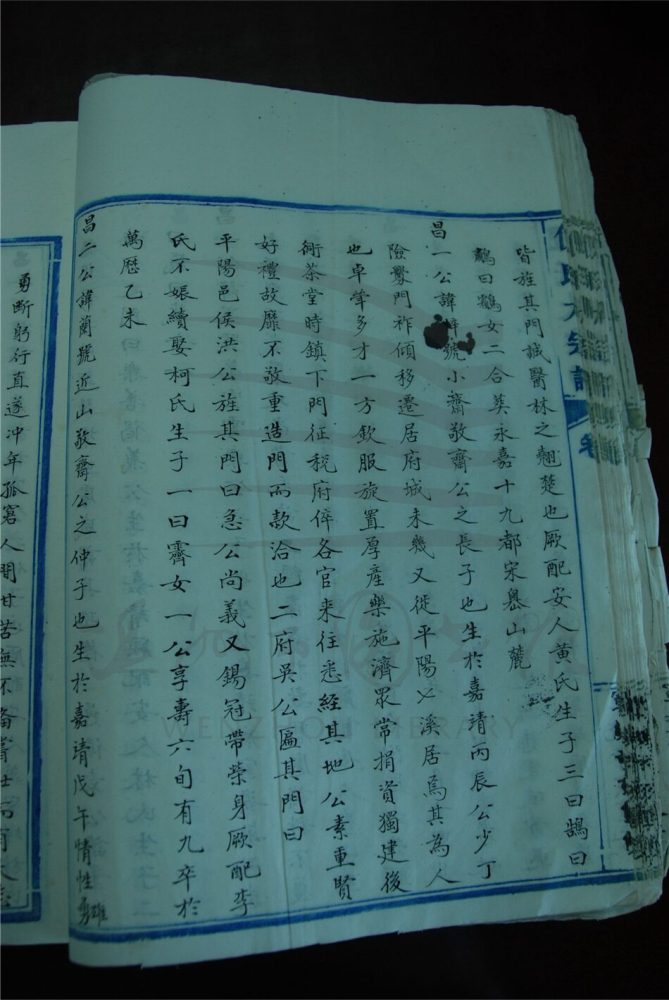 皆旌其門誠醫林之翹楚也厥配安人黃氏生子三曰鵠曰
鸛曰鶴女二合葬永嘉十九都宋嶴山麓
昌一公諱 號小齋敬齋公之長子也生於嘉靖丙辰公少丁
險釁門祚傾移遷居府城未幾又徙平陽 溪居焉其為人
也卓犖多才一方欽服旋置厚產樂施濟眾常捐資獨建後
衕茶堂時鎮下門征稅府倅各官来往悉經其地公素重賢
好禮故靡不敬重造門而款洽也二府吳公匾其門曰
平陽邑侯洪公旌其門曰急公尚義又錫冠帶榮身厥配李
氏不娠續娶柯氏生子一曰霽女一公享壽六旬有九卒於
萬歷乙未
昌二公諱蘭號近山敬齋公之仲子也生於嘉靖戊午情性雄
勇斷躬行直遂冲年孤窘人間甘苦無不備嘗壯而有大志
氏大宗譜
卷
WENZHOU LIBRARY